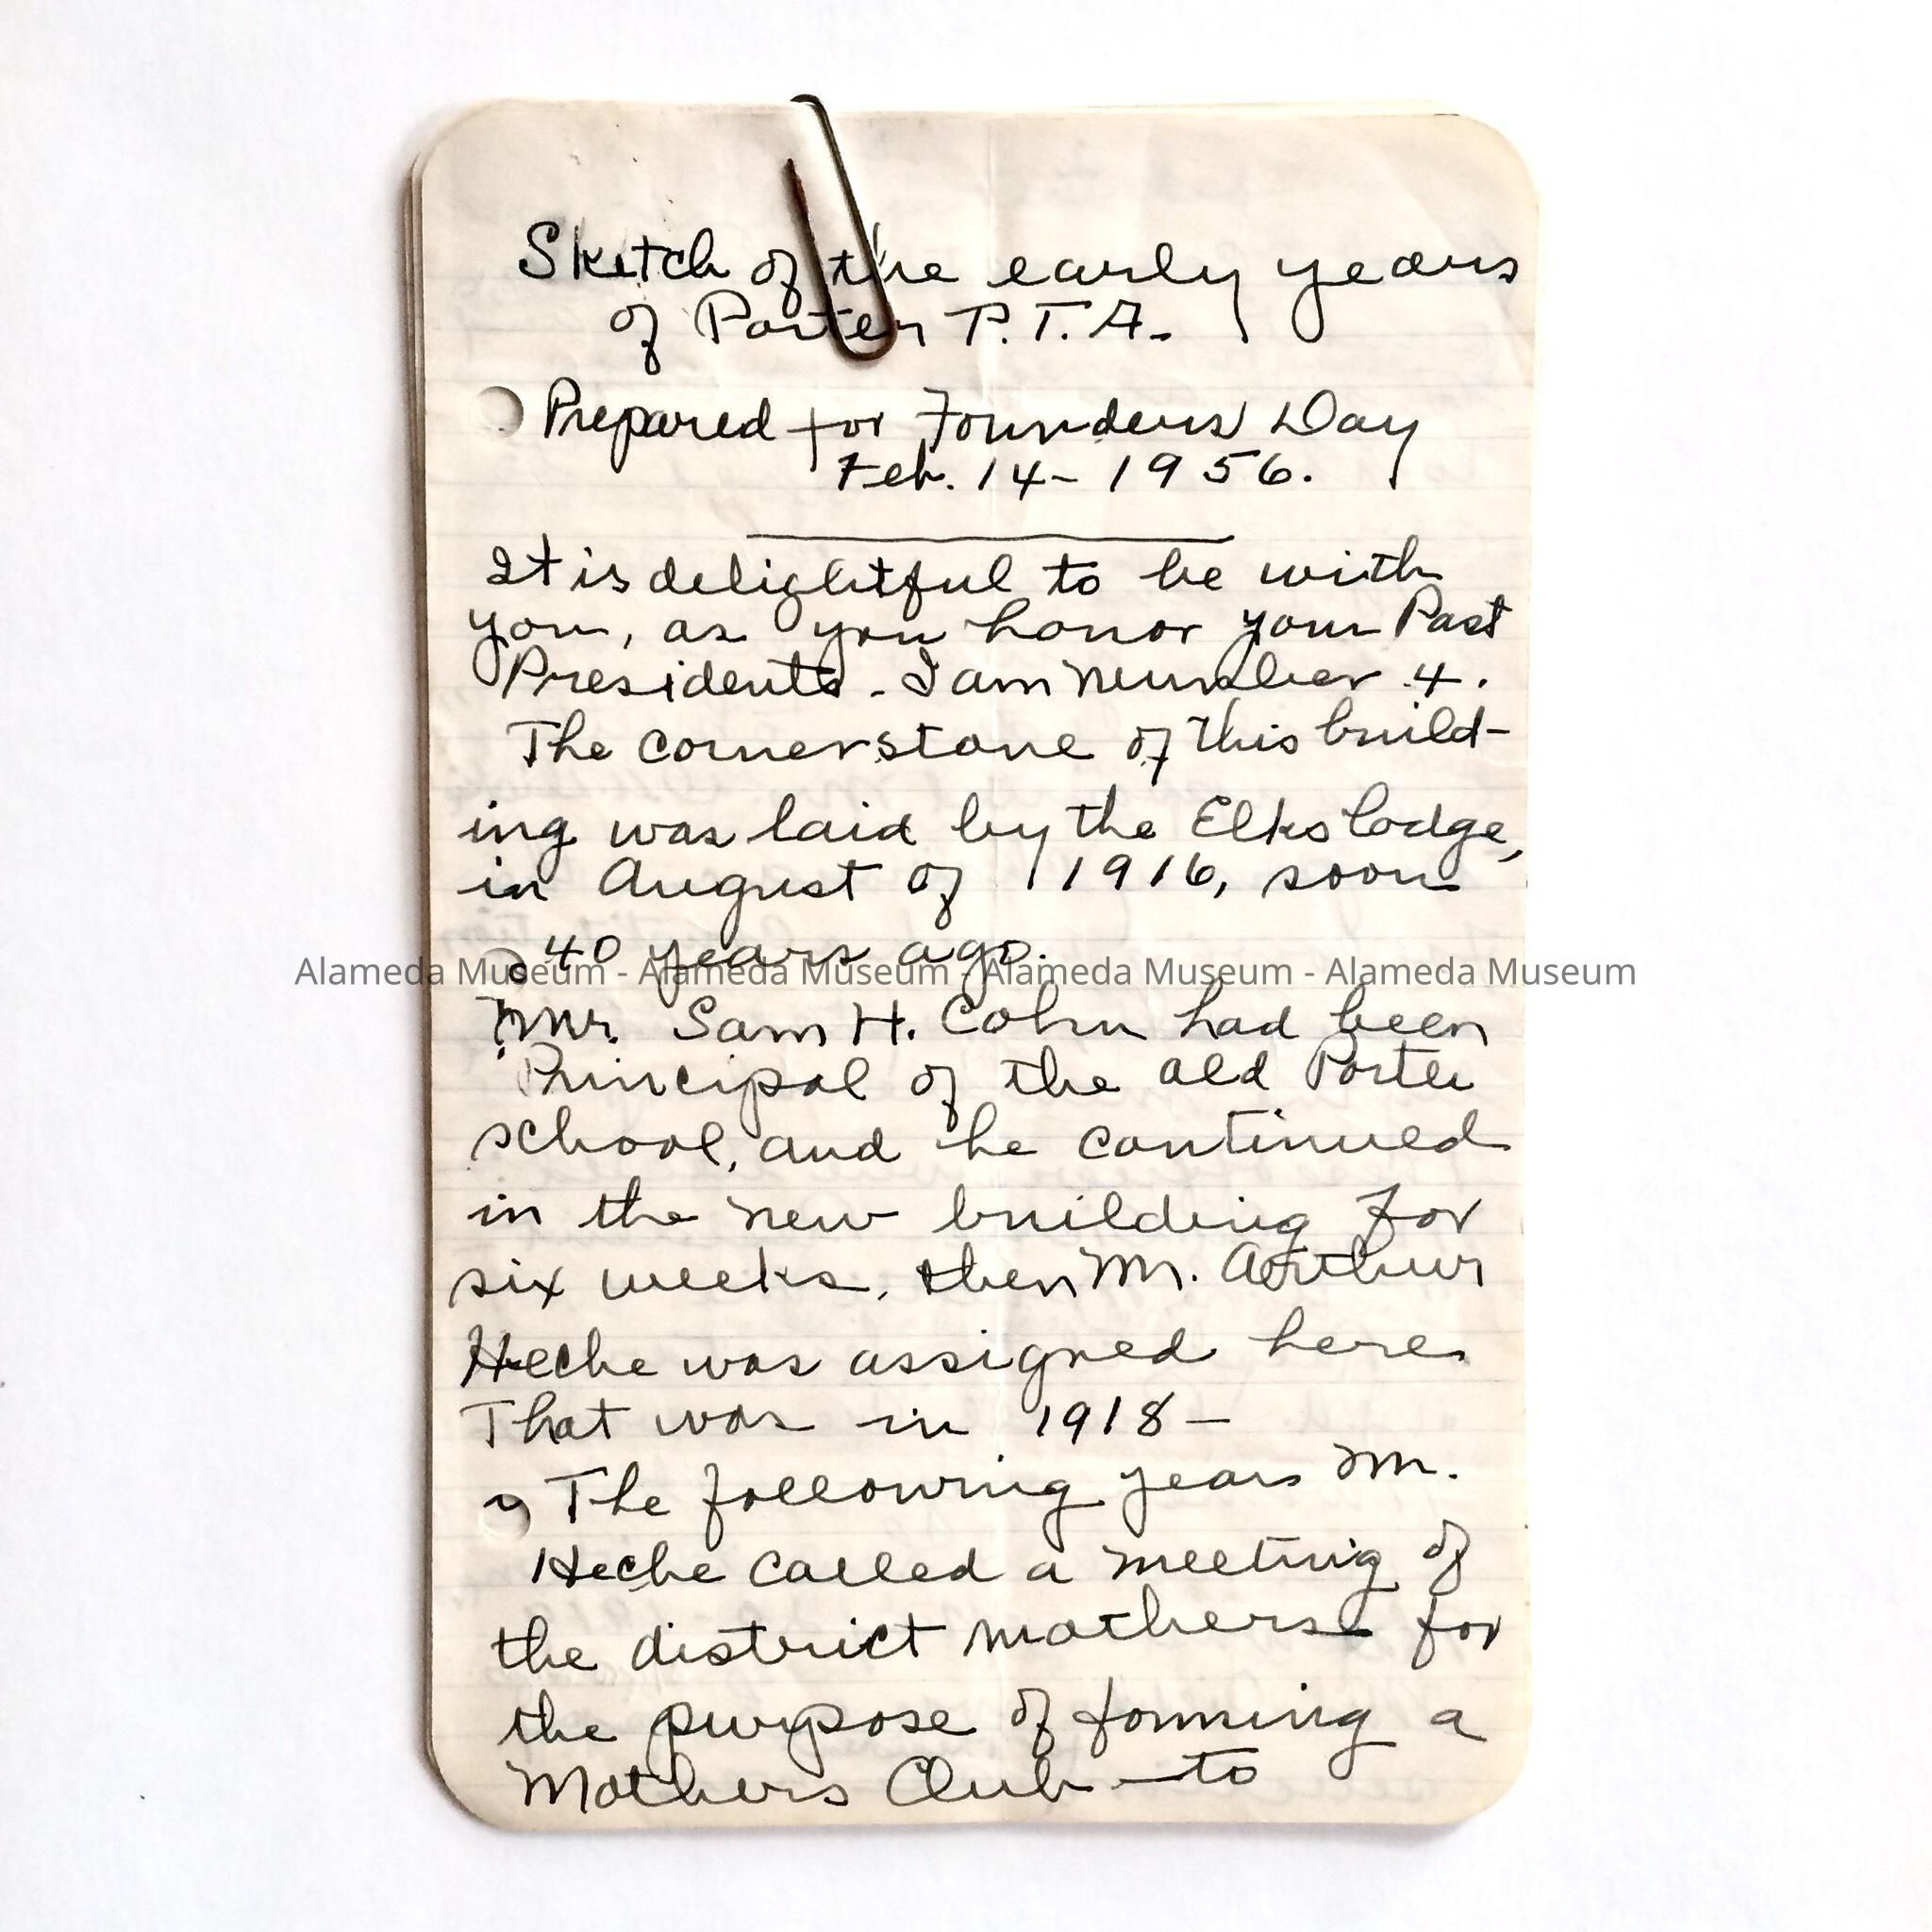 Sketch of the early years
of Porter P.T.A.
Prepared for Founders Day
Feb. 14 - 1956.
It is delightful to be with
you, as you honor your Past
Presidents. I am number 4.
The cornerstone of this build-
ing was laid by the Elks lodge,
in August of 1916, soon
40 years ago.
Alameda Museum - Alameda Museum - Alameda Museum - Alameda Museum
Mr. Sam H. Cohn had been
Principal of the old Porter
school, and he continued
in the new building for
six weeks, then Mr. Arthur
Heche was assigned here
That was in 1918 -
The following years Mr.
Heche called a meeting of
the district mothers for
the purpose of forming a
Mothers Club - to